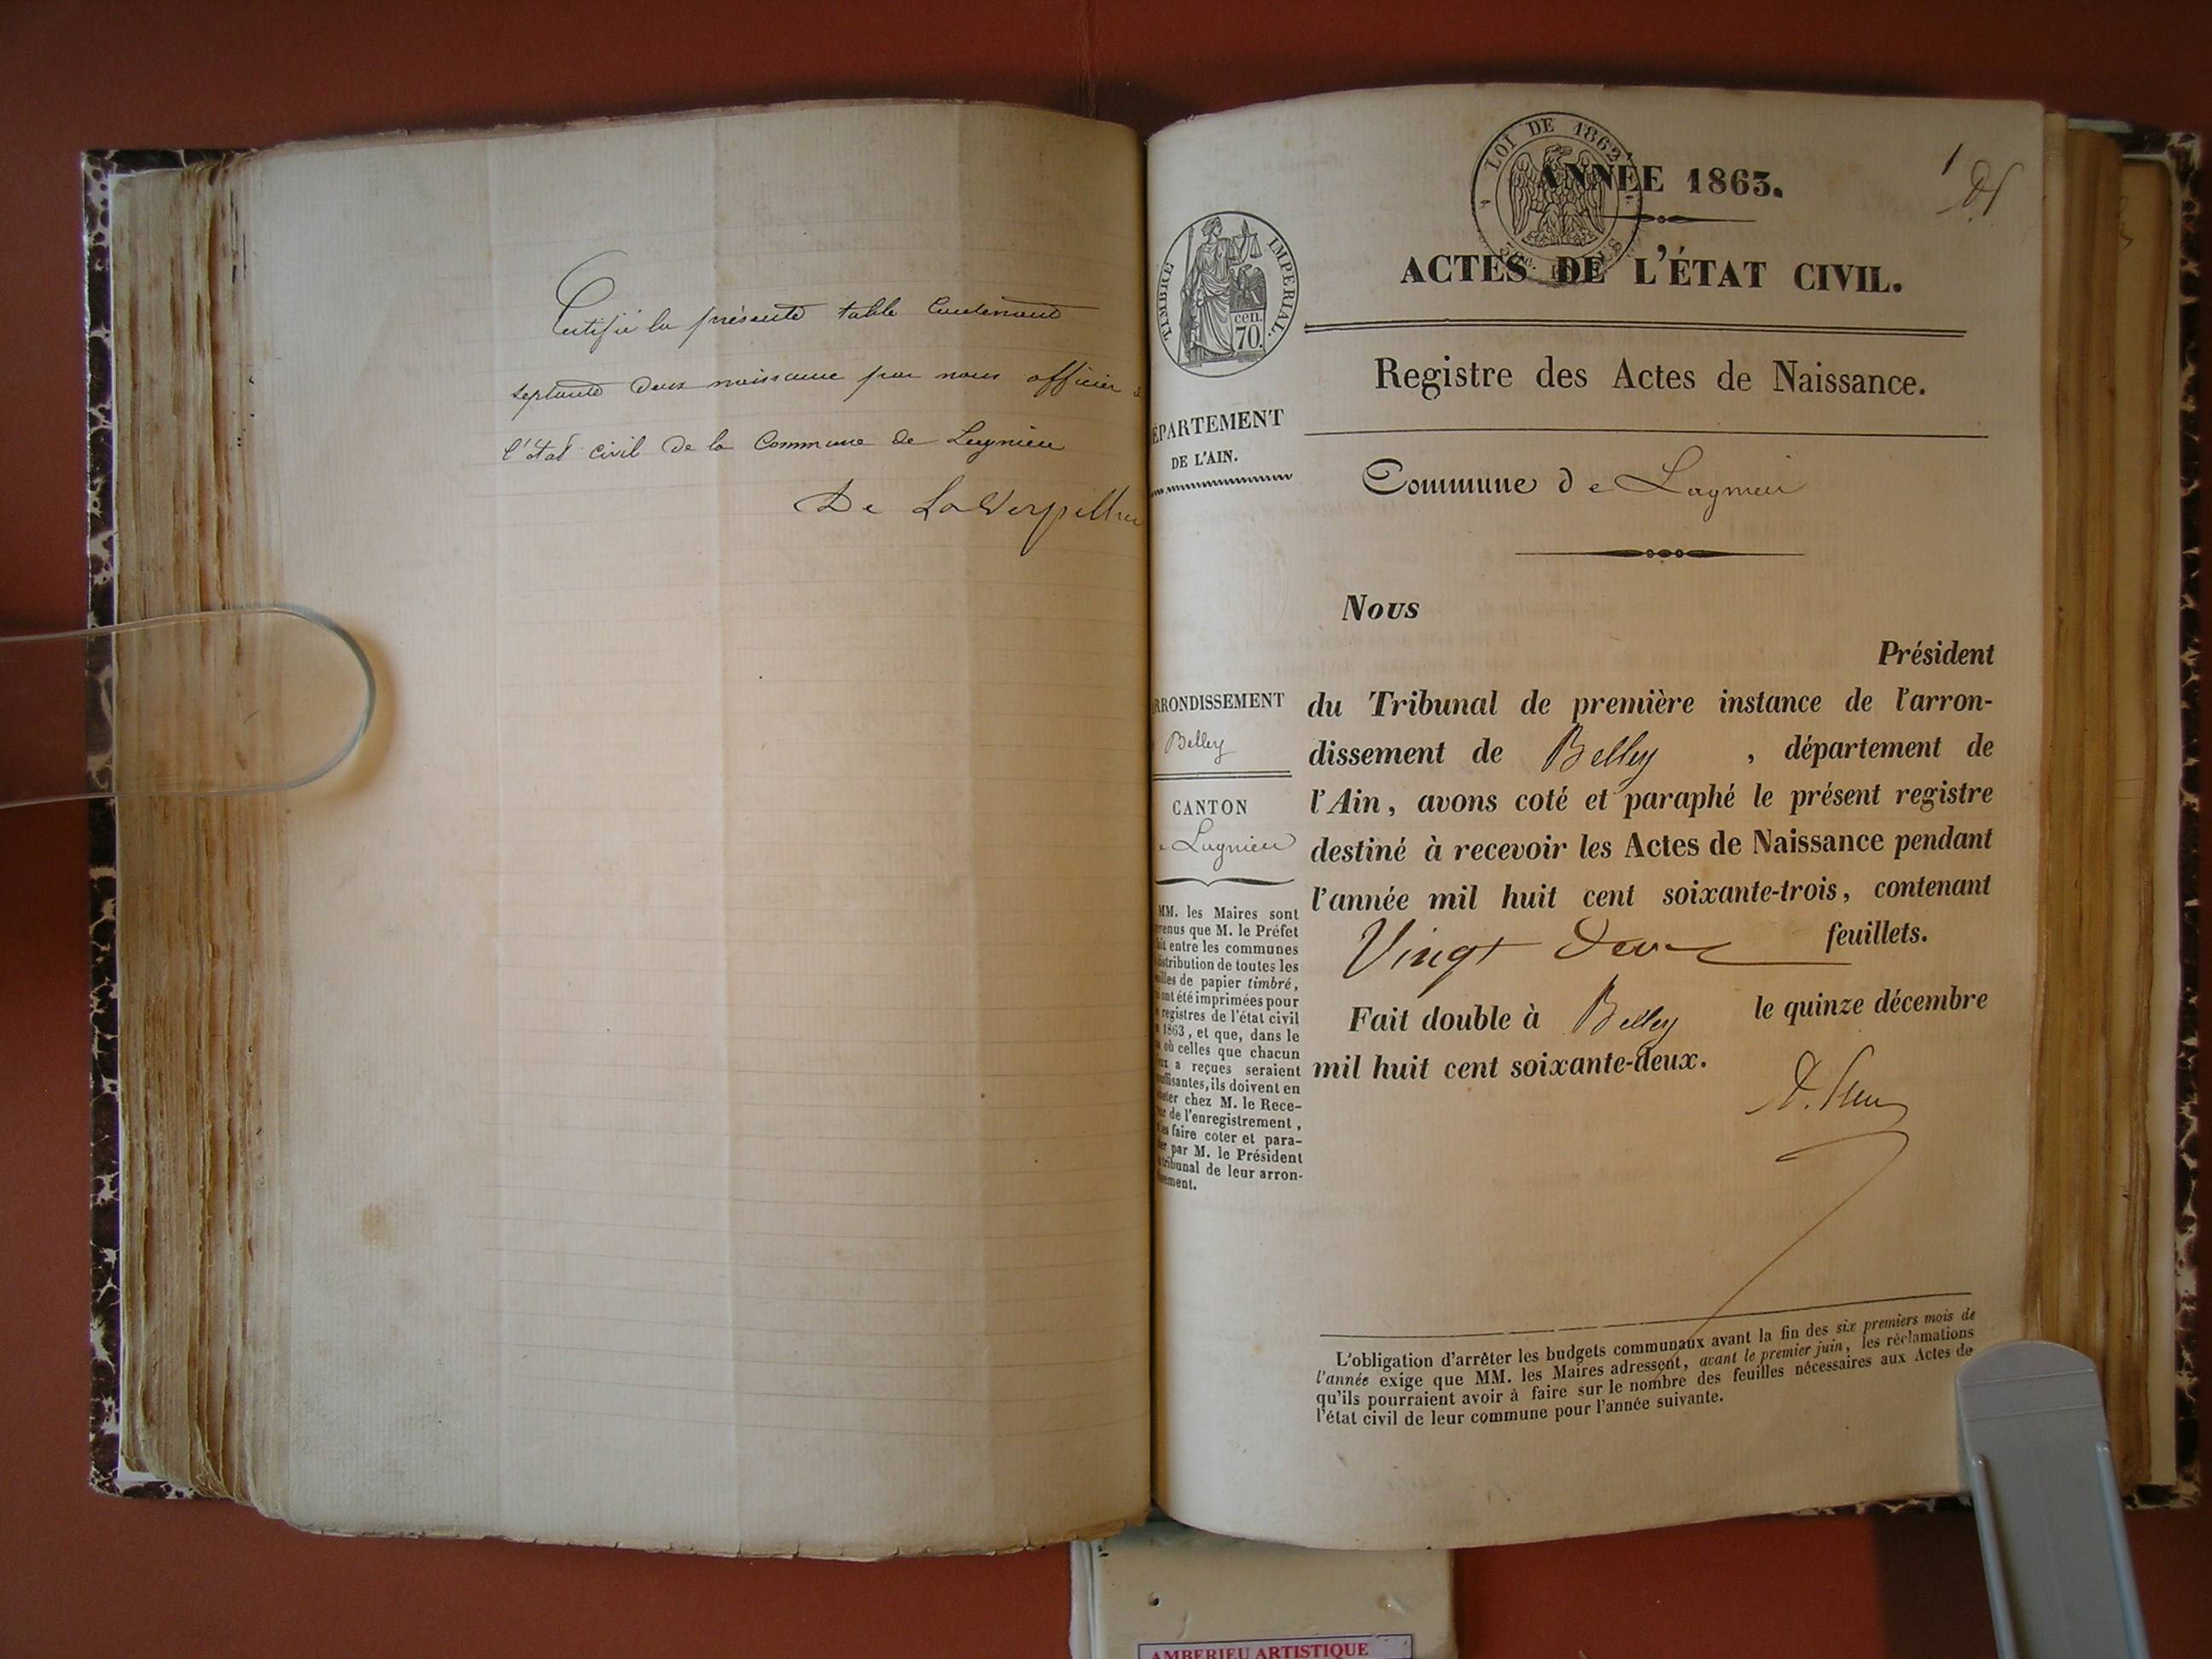 Certifié la présente table contenant
septante deux naissance par nous officier
l'état civil de la Commune de Lagnieu
De La Verpillier
LOI DE 1862
ANNÉE 1863.
1
ACTES DE L'ÉTAT CIVIL.
TIMBRE IMPERIAL.
cen.
70.
Registre des Actes de Naissance.
ÉPARTEMENT
DE L'AIN.
Commune de Lagnieu
Nous
Président
du Tribunal de première instance de l'arron-
dissement de Belley , département de
l'Ain, avons coté et paraphé le présent registre
destiné à recevoir les Actes de Naissance pendant
l'année mil huit cent soixante-trois, contenant
Vingt deux feuillets.
Fait double à Belley le quinze décembre
mil huit cent soixante-deux.
RRONDISSEMENT
Belley
CANTON
e Lagnieu
MM. les Maires sont
venus que M. le Préfet
it entre les communes
istribution de toutes les
illes de papier timbré,
i ont été imprimées pour
s registres de l'état civil
1863, et que, dans le
s où celles que chacun
eux a reçues seraient
uffisantes, ils doivent en
eter chez M. le Rece-
ur de l'enregistrement,
les faire coter et para-
er par M. le Président
tribunal de leur arron-
sement.
L'obligation d'arrêter les budgets communaux avant la fin des six premiers mois de
l'année exige que MM. les Maires adressent, avant le premier juin, les réclamations
qu'ils pourraient avoir à faire sur le nombre des feuilles nécessaires aux Actes de
l'état civil de leur commune pour l'année suivante.
AMBERIEU ARTISTIQUE